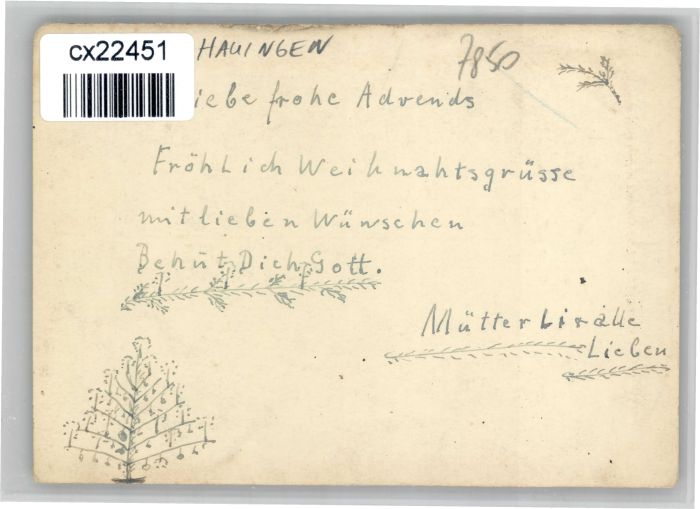 cx22451
HAUINGEN 7850
iebe frohe Advends
Fröhlich Weihnahtsgrüsse
mit lieben Wünschen
Behüt Dich Gott.
Mütterli
alle
Lieben